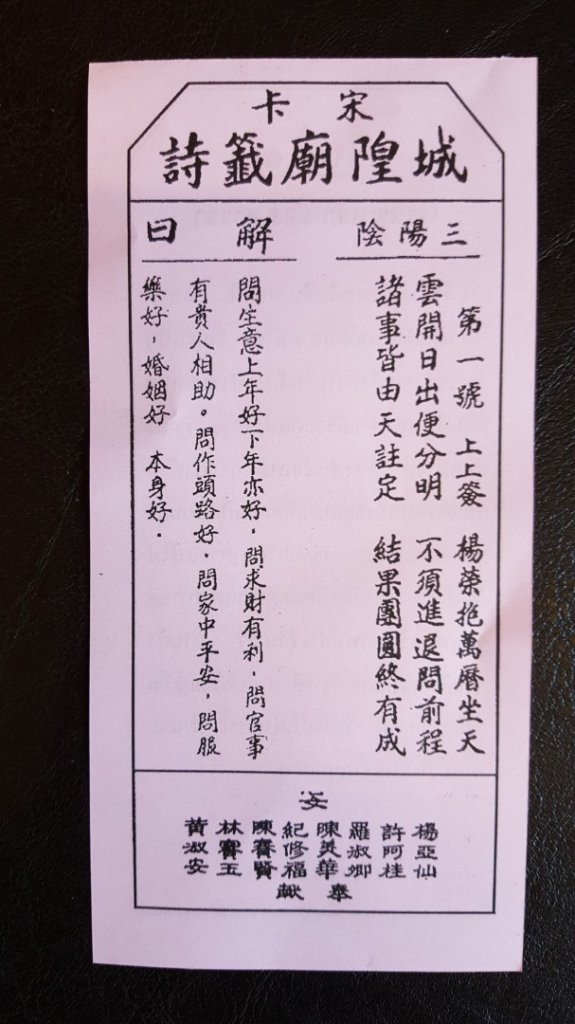 宋卡
城隍廟籤詩
三陽陰
解曰
第一號 上上簽 楊榮抱萬曆坐天
雲開日出便分明 不須進退問前程
諸事皆由天註定 結果團圓終有成
問生意上年好下年亦好，問求財有利，問官事
有貴人相助。問作頭路好，問家中平安，問服
藥好 婚姻好 本身好．
安
楊亞仙
許阿桂
羅淑卿
陳美華
紀修福
陳賽賢
林寶玉
黃淑安
奉献